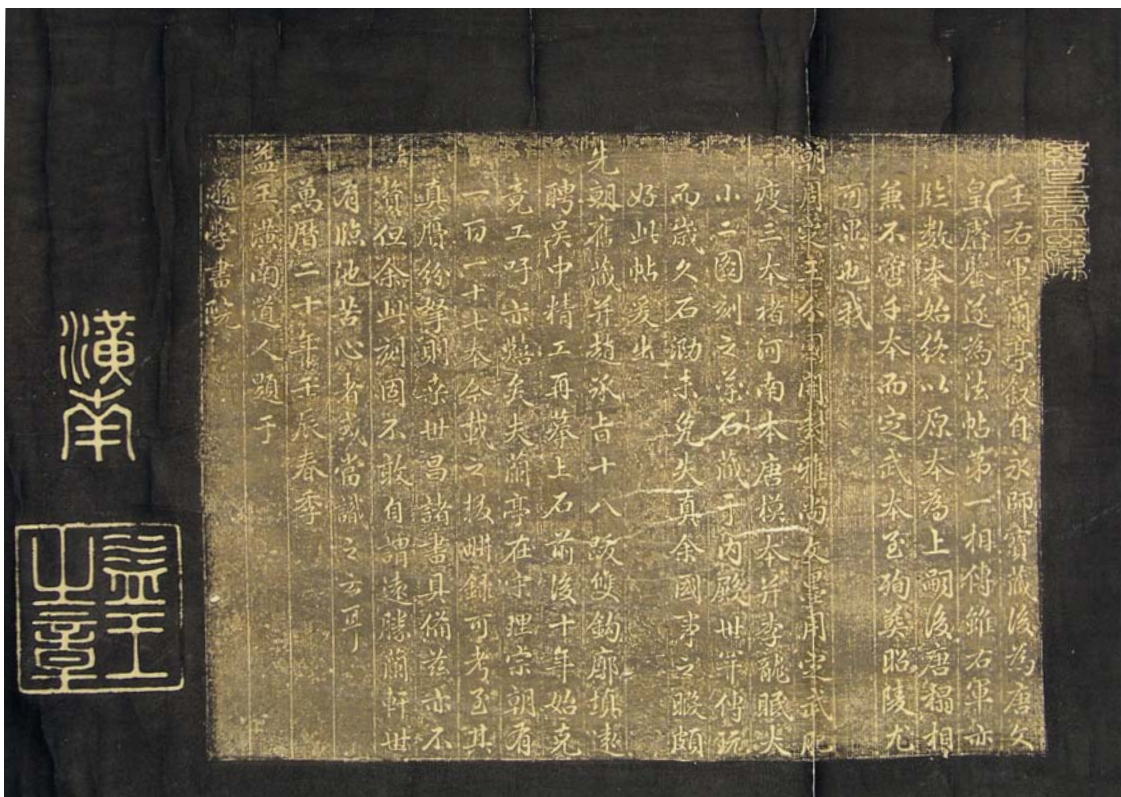 王右軍蘭亭叙自永師寶藏後為唐文
皇賡鑒遂為法帖第一相傳雖右軍亦
臨數本始終以原本為上嗣後唐榻相
兼不啻千本而定武本至殉葬昭陵尤
可異也我
朝周王分國開封雅尚友墨用定武肥
瘦三本褚河南本唐模本并李龍眠大
小二圖刻之樂石藏于內殿世守傳玩
而歲久石泐未免失真余國事之暇頗
好此帖爰出
先朝舊藏并趙承旨十八跋雙鉤廓填敦
聘吳中精工再摹上石前後十年始克
竟工吁亦難矣夫蘭亭在宋理宗朝有
一百一十七本今載之輟畊錄可考至其
真贋紛拏則桑世昌諸書具備茲亦不
贅但余此刻固不敢自謂遠勝蘭軒世
有臨池苦心者或當識之云耳
萬曆二十年壬辰春季
益王潢南道人題于
遜學書院
潢南
益王之章